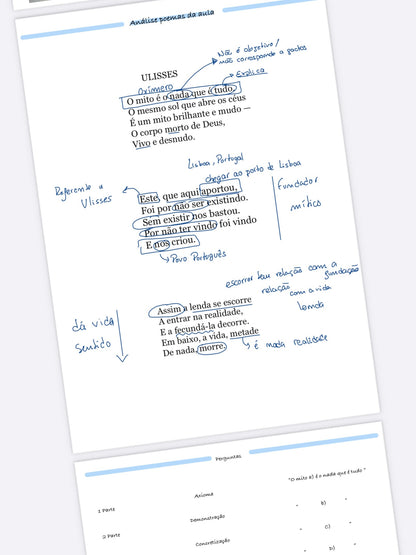 Análise poemas da aula
Não é objetivo/
não corresponde a factos
ULISSES
Oxímero
Explica
O mito é o nada que é tudo.
O mesmo sol que abre os céus
É um mito brilhante e mudo —
O corpo morto de Deus,
Vivo e desnudo.
Lisboa, Portugal
chegar ao porto de Lisboa
Referente a
Ulisses
Este, que aqui aportou,
Foi por não ser existindo.
Sem existir nos bastou.
Por não ter vindo foi vindo
E nos criou.
Fundador
mítico
Povo Português
escorrer tem relação com a fundação
relação com a vida
lenda
Assim a lenda se escorre
A entrar na realidade,
E a fecundá-la decorre.
Em baixo, a vida, metade
De nada, morre.
dá vida
sentido
é nada realidade
Perguntas
1 Parte Axioma "O mito a) é o nada que é tudo"
2 Parte Demonstração " b) "
Concretização " c) "
" D) "